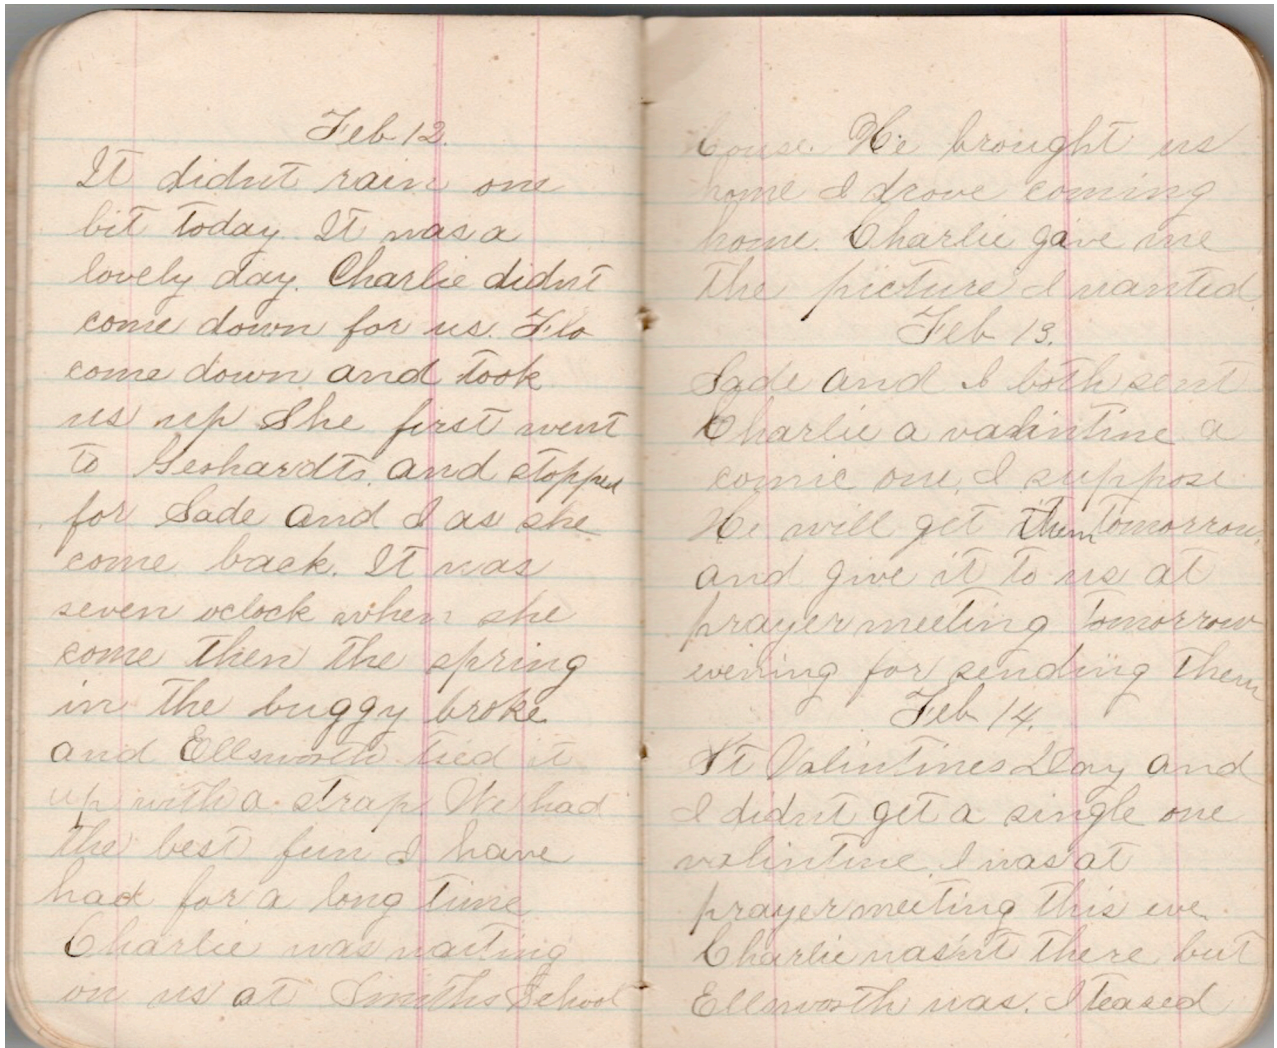 Feb 12.
It didnt rain one
bit today. It was a
lovely day. Charlie didnt
come down for us. Flo
come down and took
us up She first went
to Geohardts. and stopped
for Sade and I as she
come back. It was
seven oclock when she
come then the spring
in the buggy broke
and Ellsworth tied it
up with a strap. We had
the best fun I have
had for a long time
Charlie was waiting
on us at Smiths School
house. He brought us
home I drove coming
home. Charlie gave me
the picture I wanted
Feb 13.
Sade and I both sent
Charlie a valintine a
comic one, I suppose
He will get them tomorrow
and give it to us at
prayer meeting tomorrow
evening for sending them
Feb 14.
St Valintines Day and
I didnt get a single one
valintine. I was at
prayer meeting this eve
Charlie wasnt there but
Ellsworth was. I teased